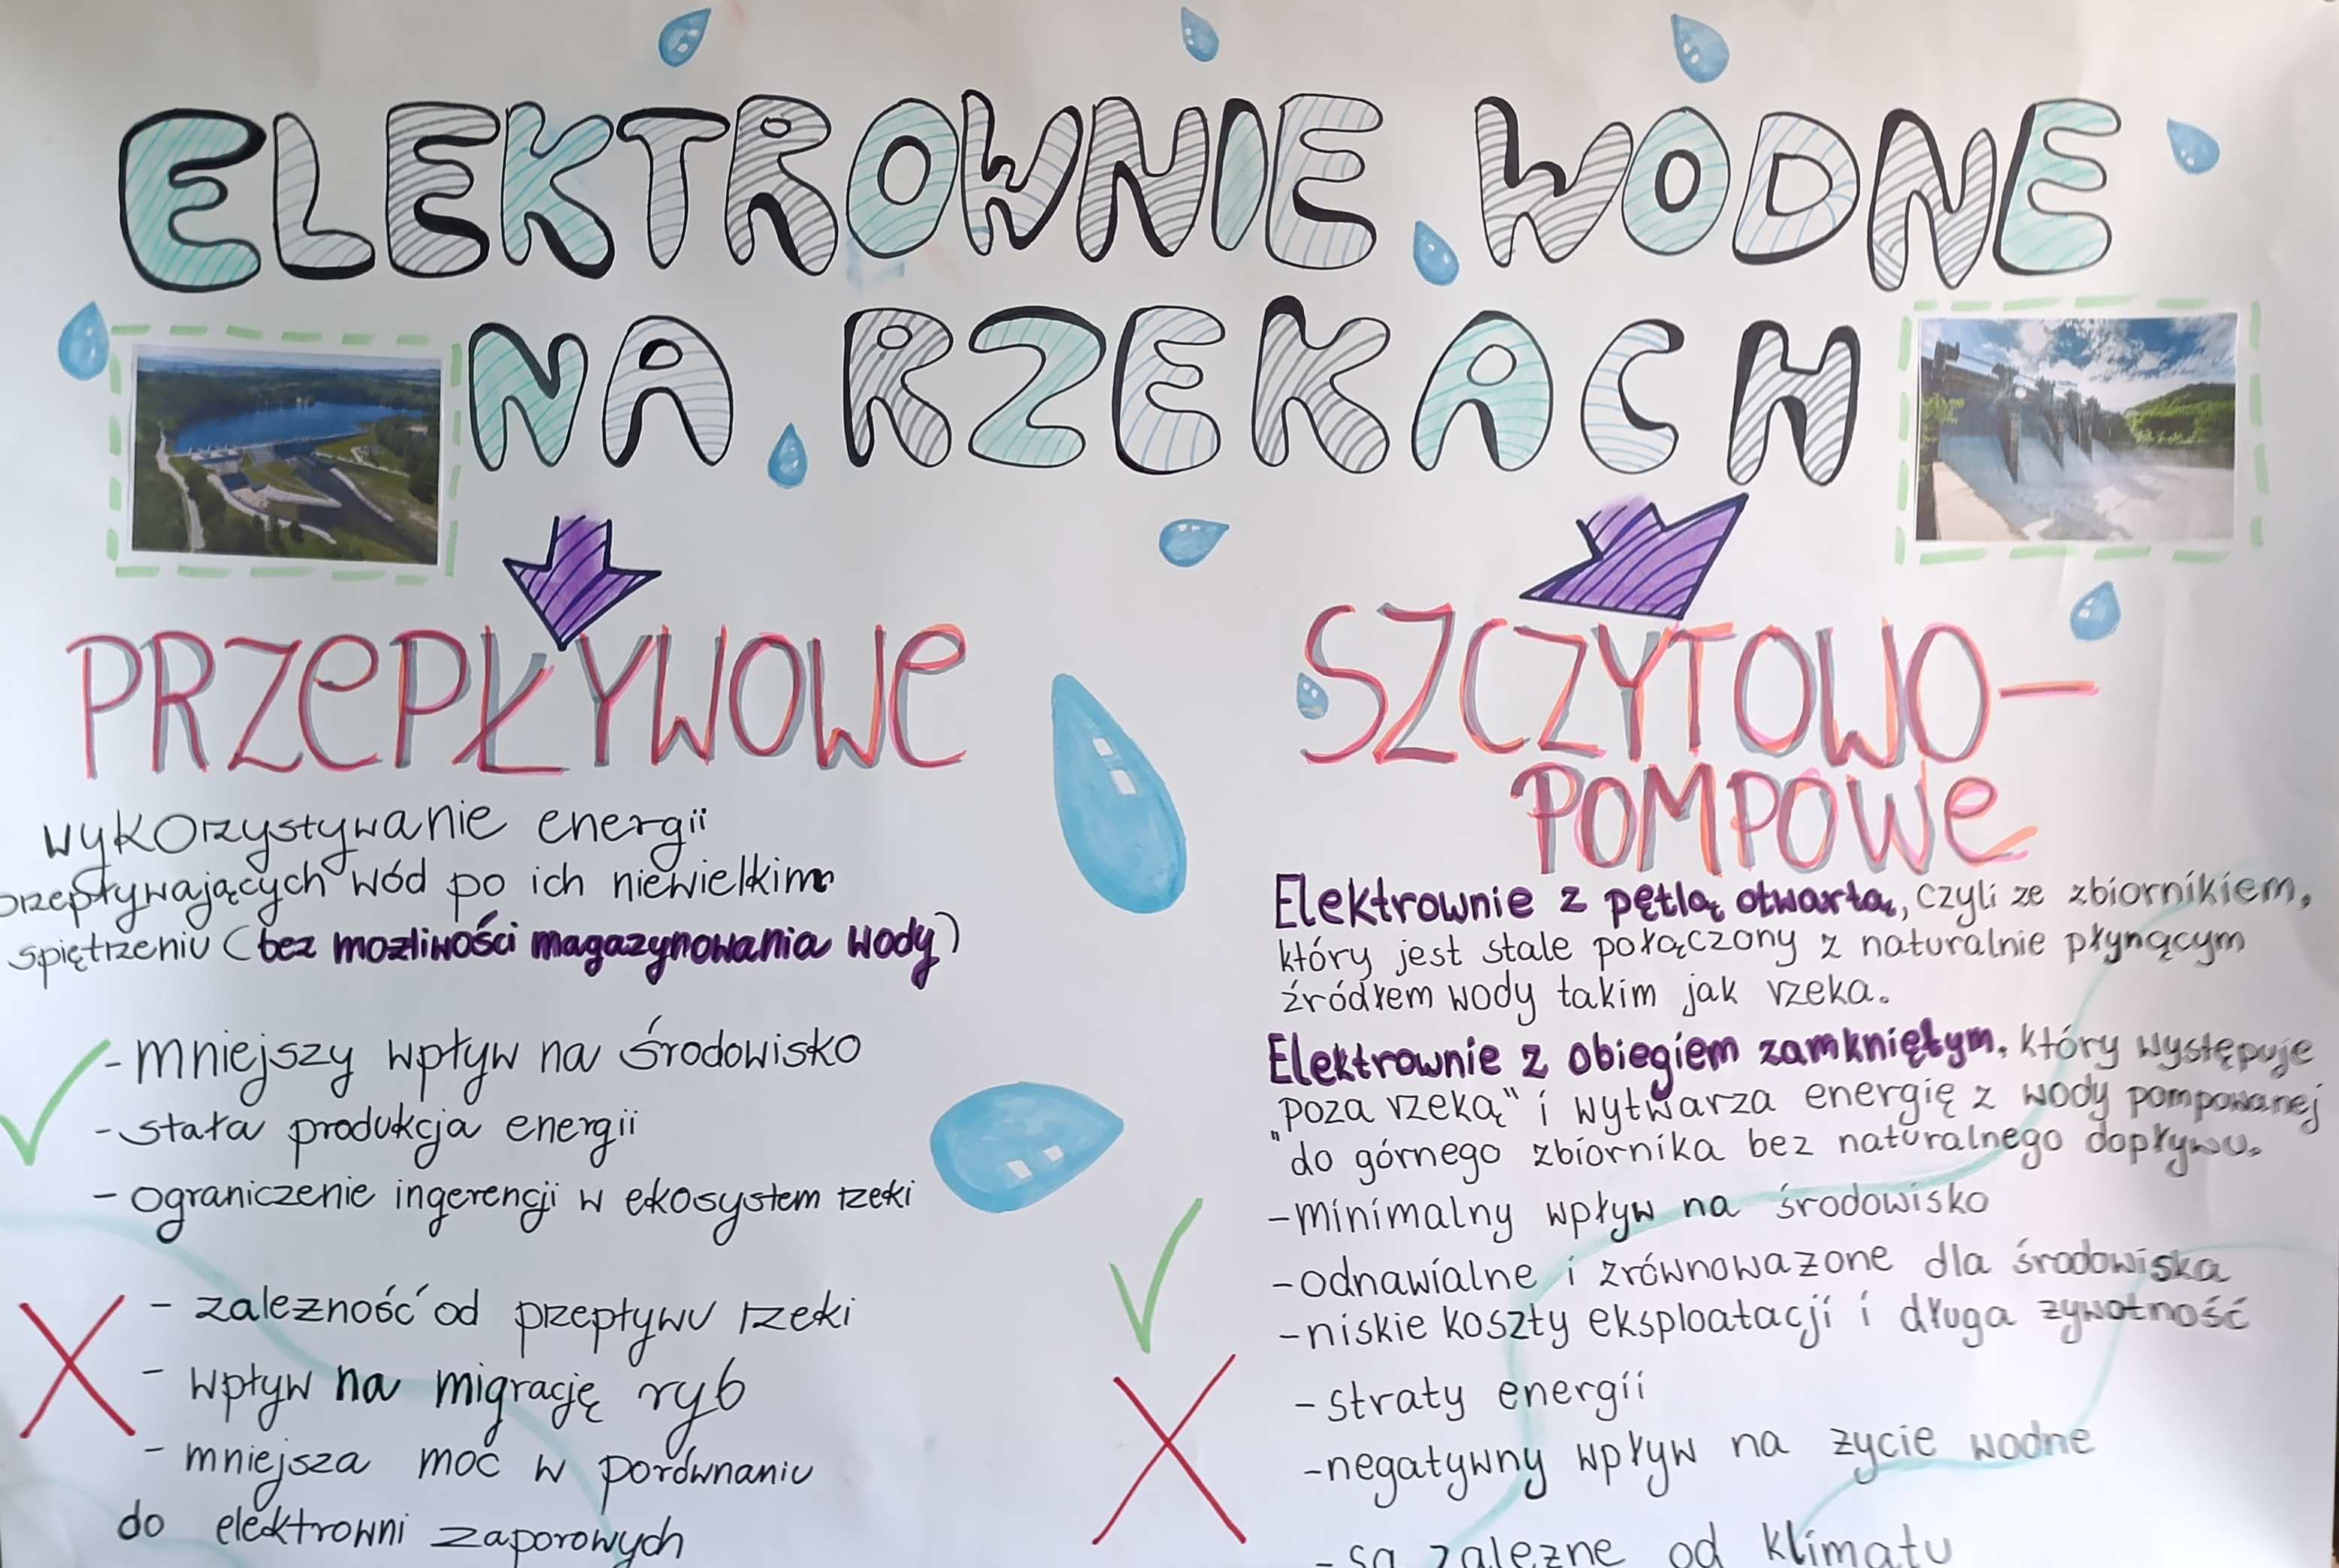 ELEKTROWNIE WODNE
NA RZEKACH
PRZEPŁYWOWE
wykorzystywanie energii
przepływających wód po ich niewielkim
spiętrzeniu (bez mozliwości magazynowania wody)
- mniejszy wpływ na środowisko
- stała produkcja energii
- ograniczenie ingerencji w ekosystem rzeki
- zalezność od przepływu rzeki
- wpływ na migrację ryb
- mniejsza moc w porównaniu
do elektrowni zaporowych
SZCZYTOWO-
POMPOWE
Elektrownie z pętlą otwartą, czyli ze zbiornikiem,
który jest stale połączony z naturalnie płynącym
źródłem wody takim jak rzeka.
Elektrownie z obiegiem zamkniętym, który występuje
"poza rzeką" i wytwarza energię z wody pompowanej
do górnego zbiornika bez naturalnego dopływu.
- minimalny wpływ na środowisko
- odnawialne i zrównowazone dla środowiska
- niskie koszty eksploatacji i długa zywotność
- straty energii
- negatywny wpływ na zycie wodne
- są zalezne od klimatu